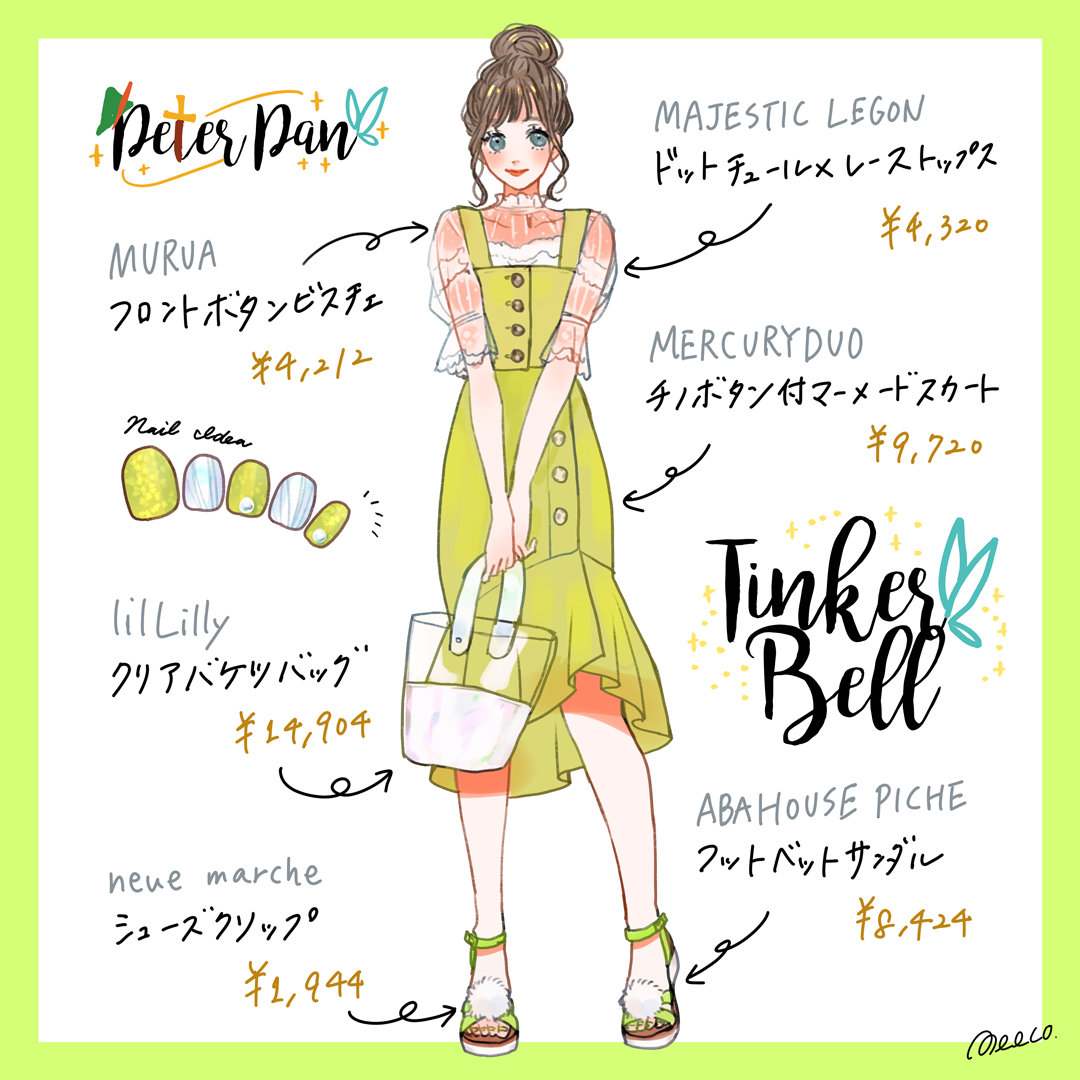 Peter Pan
MAJESTIC LEGON
ドットチュール×レーストップス
¥4,320
MURUA
フロントボタンビスチェ
¥4,212
MERCURYDUO
チノボタン付マーメードスカート
¥9,720
Nail Idea
Tinker
Bell
lilLilly
クリアバケツバッグ
¥14,904
ABAHOUSE PICHE
フットベットサンダル
¥8,424
neue marche
シューズクリップ
¥1,944
meeco.